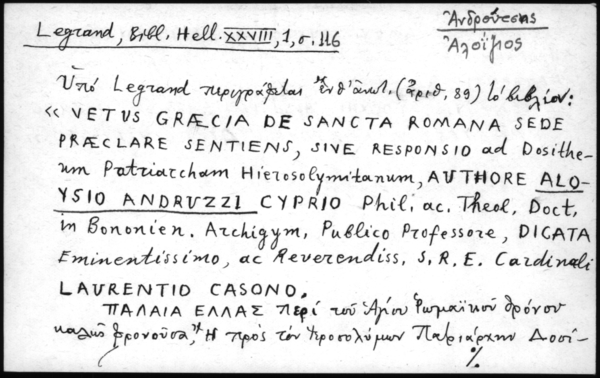 Ἀνδρούτσης
Ἀλοΐσιος
Legrand, Bibl. Hell. XXVIII, 1, σ. 116
Ὑπό Legrand περιγράφεται ἐνθ' ἀνωτ. (ἀριθ. 89) τό βιβλίον:
« VETUS GRÆCIA DE SANCTA ROMANA SEDE
PRÆCLARE SENTIENS, SIVE RESPONSIO ad Dosithe-
um Patriarcham Hierosolymitanum, AUTHORE ALO-
YSIO ANDRUZZI CYPRIO Phil, ac. Theol, Doct,
in Bononien. Archigym, Publico Professore, DICATA
Eminentissimo, ac Reverendiss. S. R. E. Cardinali
LAURENTIO CASONO.
ΠΑΛΑΙΑ ΕΛΛΑΣ περί τοῦ Ἁγίου Ῥωμαϊκοῦ θρόνου
καλῶς φρονοῦσα, Ἤ πρός τόν Ἱεροσολύμων Πατριάρχην Δοσί-
./.